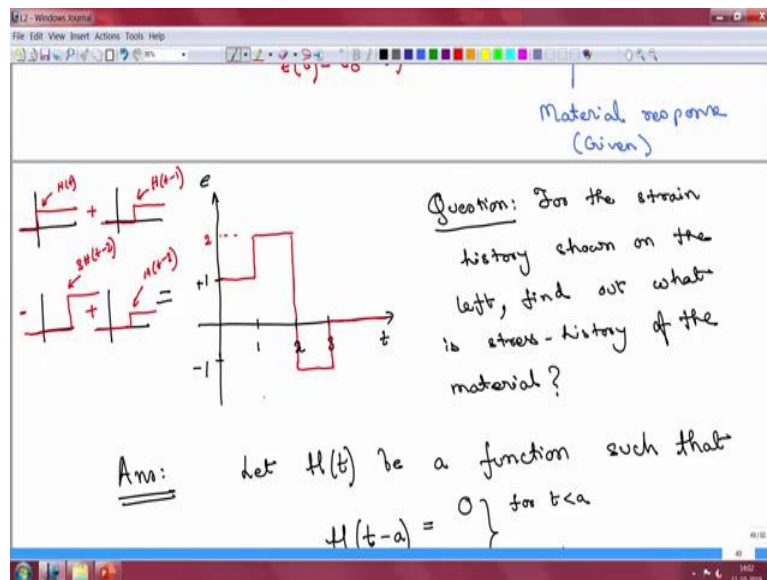 L2 - Windows Journal
File Edit View Insert Actions Tools Help
Material response
(Given)
H(t)
+
H(t-1)
- 3H(t-2)
+
H(t-3)
=
e
2
+1
-1
1 2 3 t
Question: For the strain
history shown on the
left, find out what
is stress-history of the
material?
Ans: Let H(t) be a function such that
H(t-a) = 0 } for t<a
49
14:02